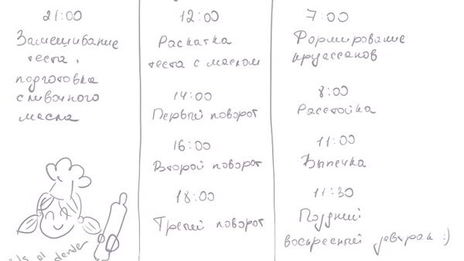 21:00
Замешивание
теста,
подготовка
сливочного
масла
12:00
Раскатка
теста с маслом
14:00
Первый поворот
16:00
Второй поворот
18:00
Третий поворот
7 00
Формирование
круассанов
8:00
Расстойка
11:00
Выпечка
11:30
Поздний
воскресный завтрак :)